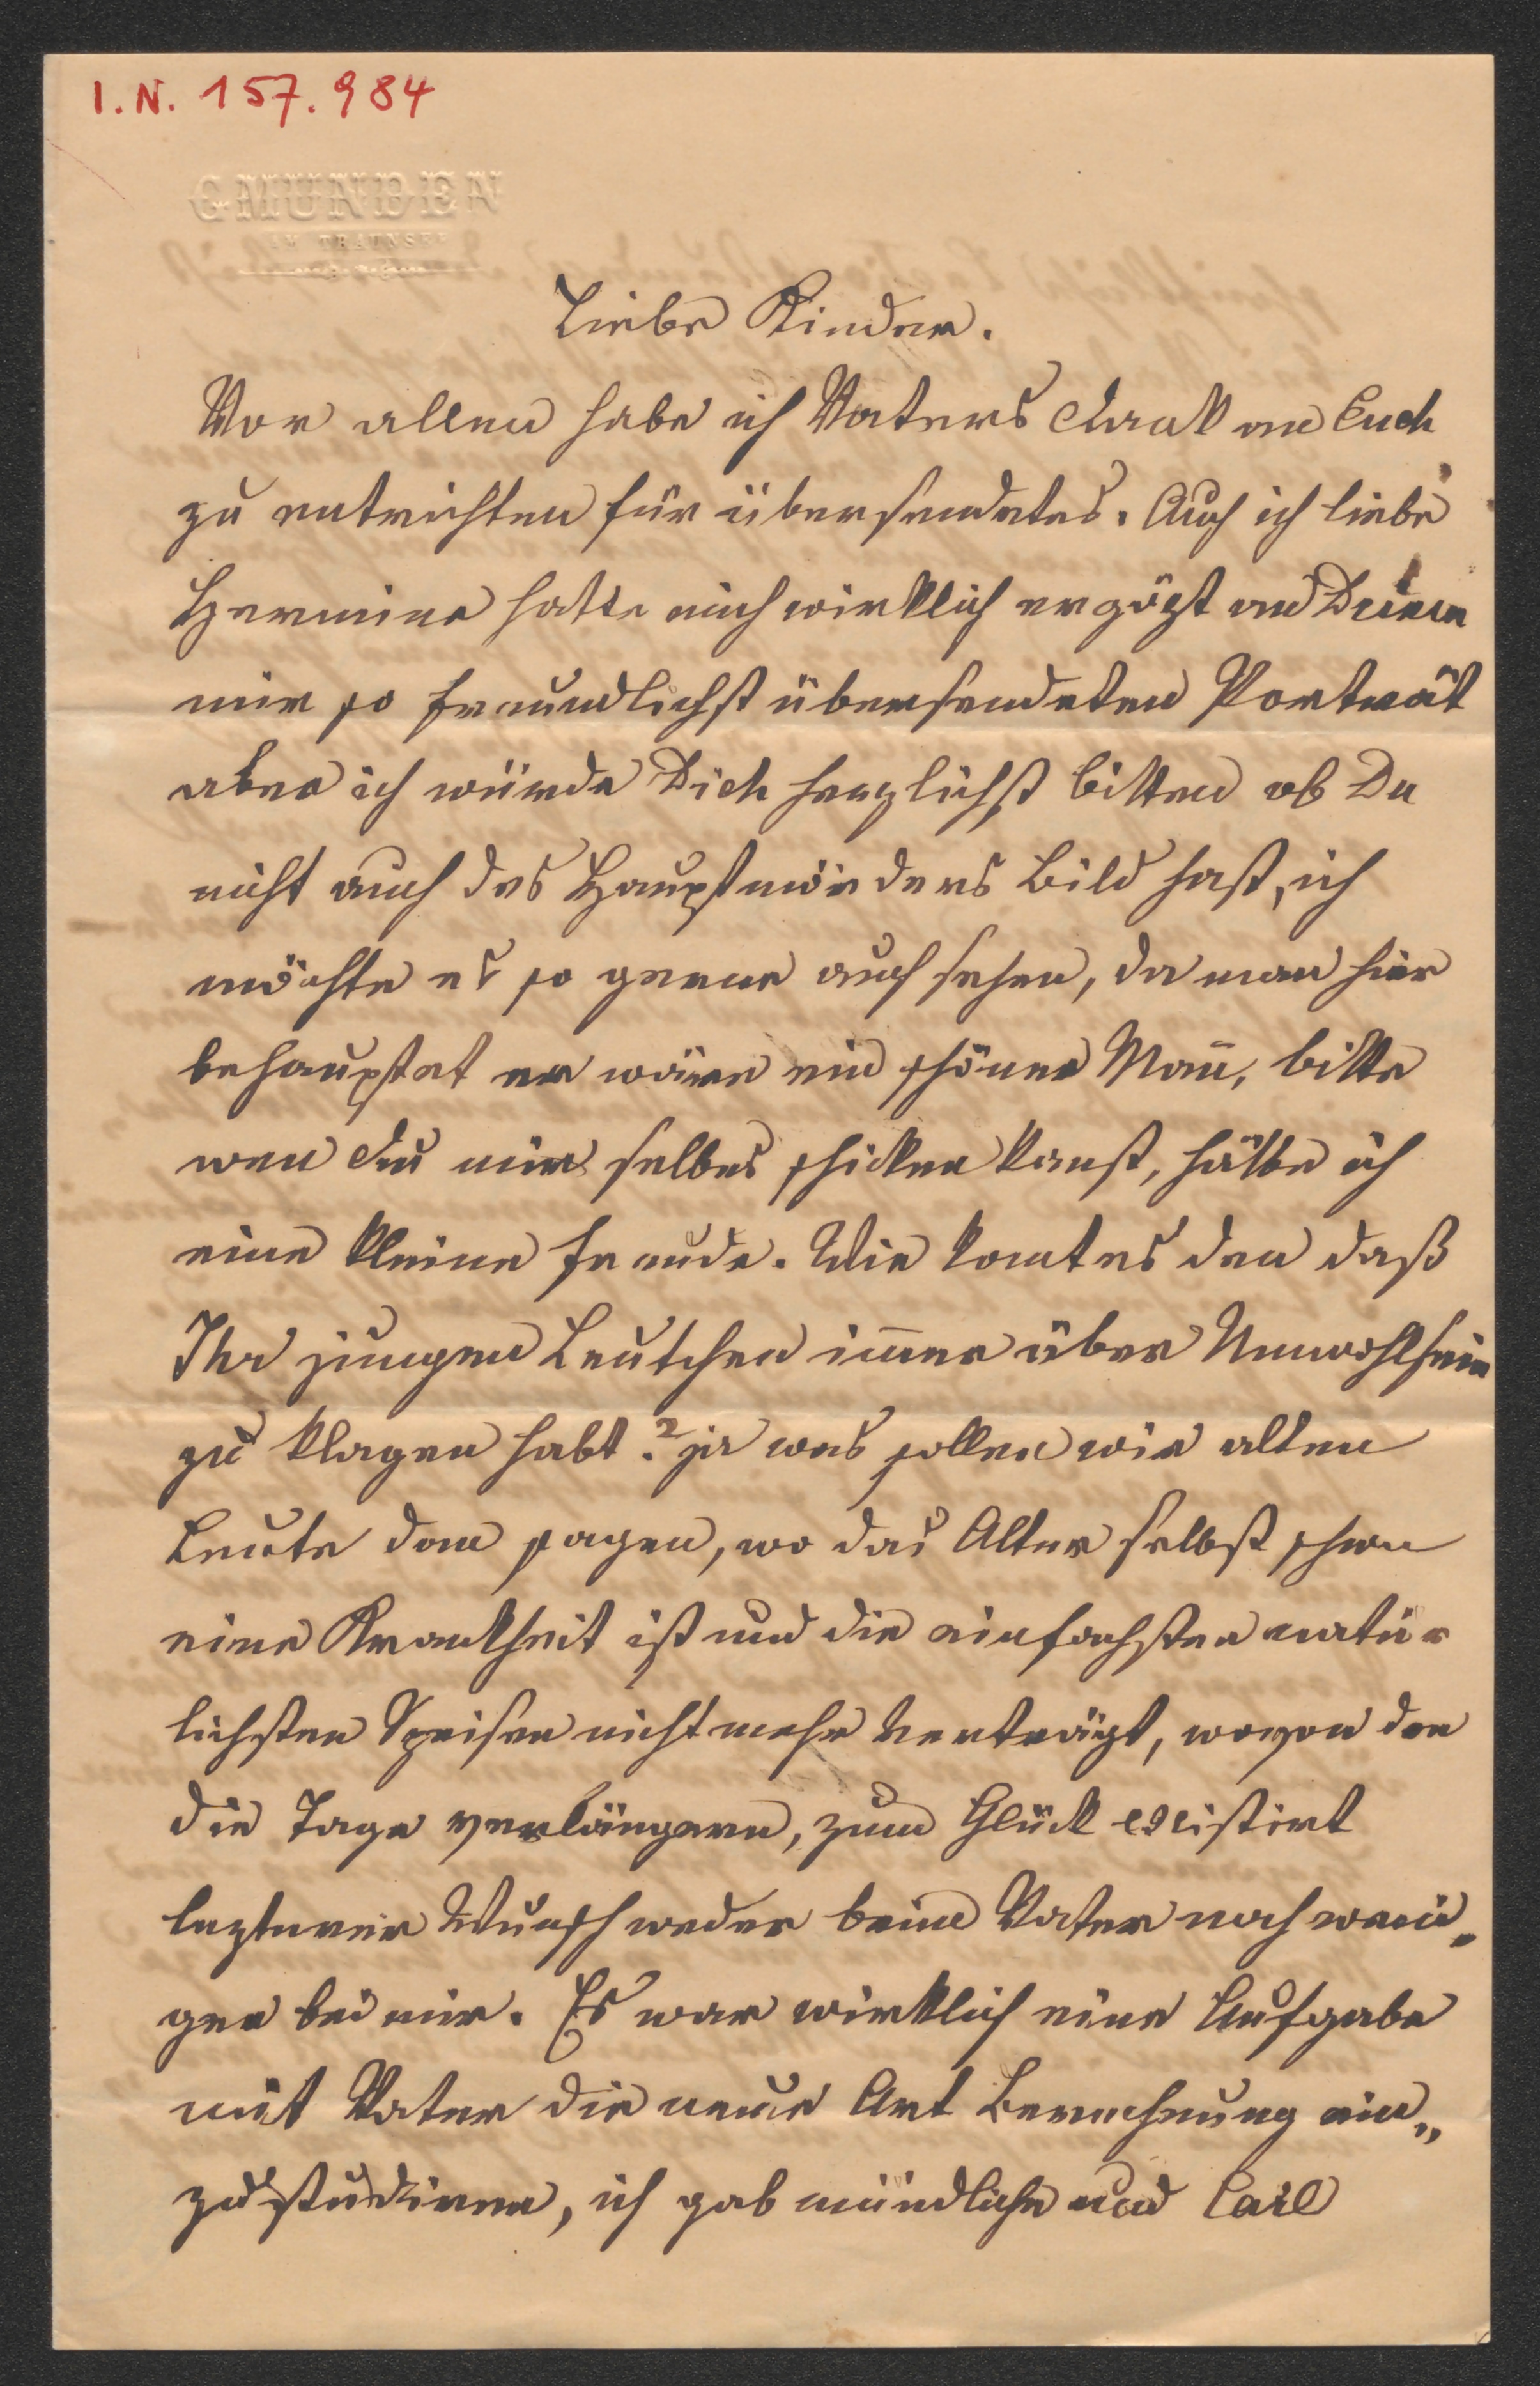 I.N. 157.984
GMUNDEN
AM TRAUNSEE
Liebe Kinder.
Vor allen habe ich Vaters Dank an Euch
zu entrichten für übersendetes. Auch ich liebe
Hermine hatte mich wirklich ergözt an Deinem
mir so freundlichst übersendeten Porträt
aber ich würde Dich herzlichst bitten ob Du
nicht auch des Hauptmörders Bild hast, ich
möchte es so gerne auch sehen, da man hier
behauptet er wäre ein schöner Mañ, bitte
wen Du mir selbes schicken kanst, hätte ich
eine kleine Freude. Wie komt es den daß
Ihr jungen Leutchen im̄er über Unwohlsein
zu klagen habt? ja was sollen wir alten
Leute dan sagen, wo das Alter selbst schon
eine Krankheit ist und die einfachsten natür
lichsten Speisen nicht mehr verträgt, wovon den
die Tage verlängern, zum Glück existirt
lezterer Wunsch weder beim Vater noch weni„
ger bei mir. Es war wirklich eine Aufgabe
mit Vater die neue Art Berechnung ein„
zustudieren, ich gab mündliche und Carl